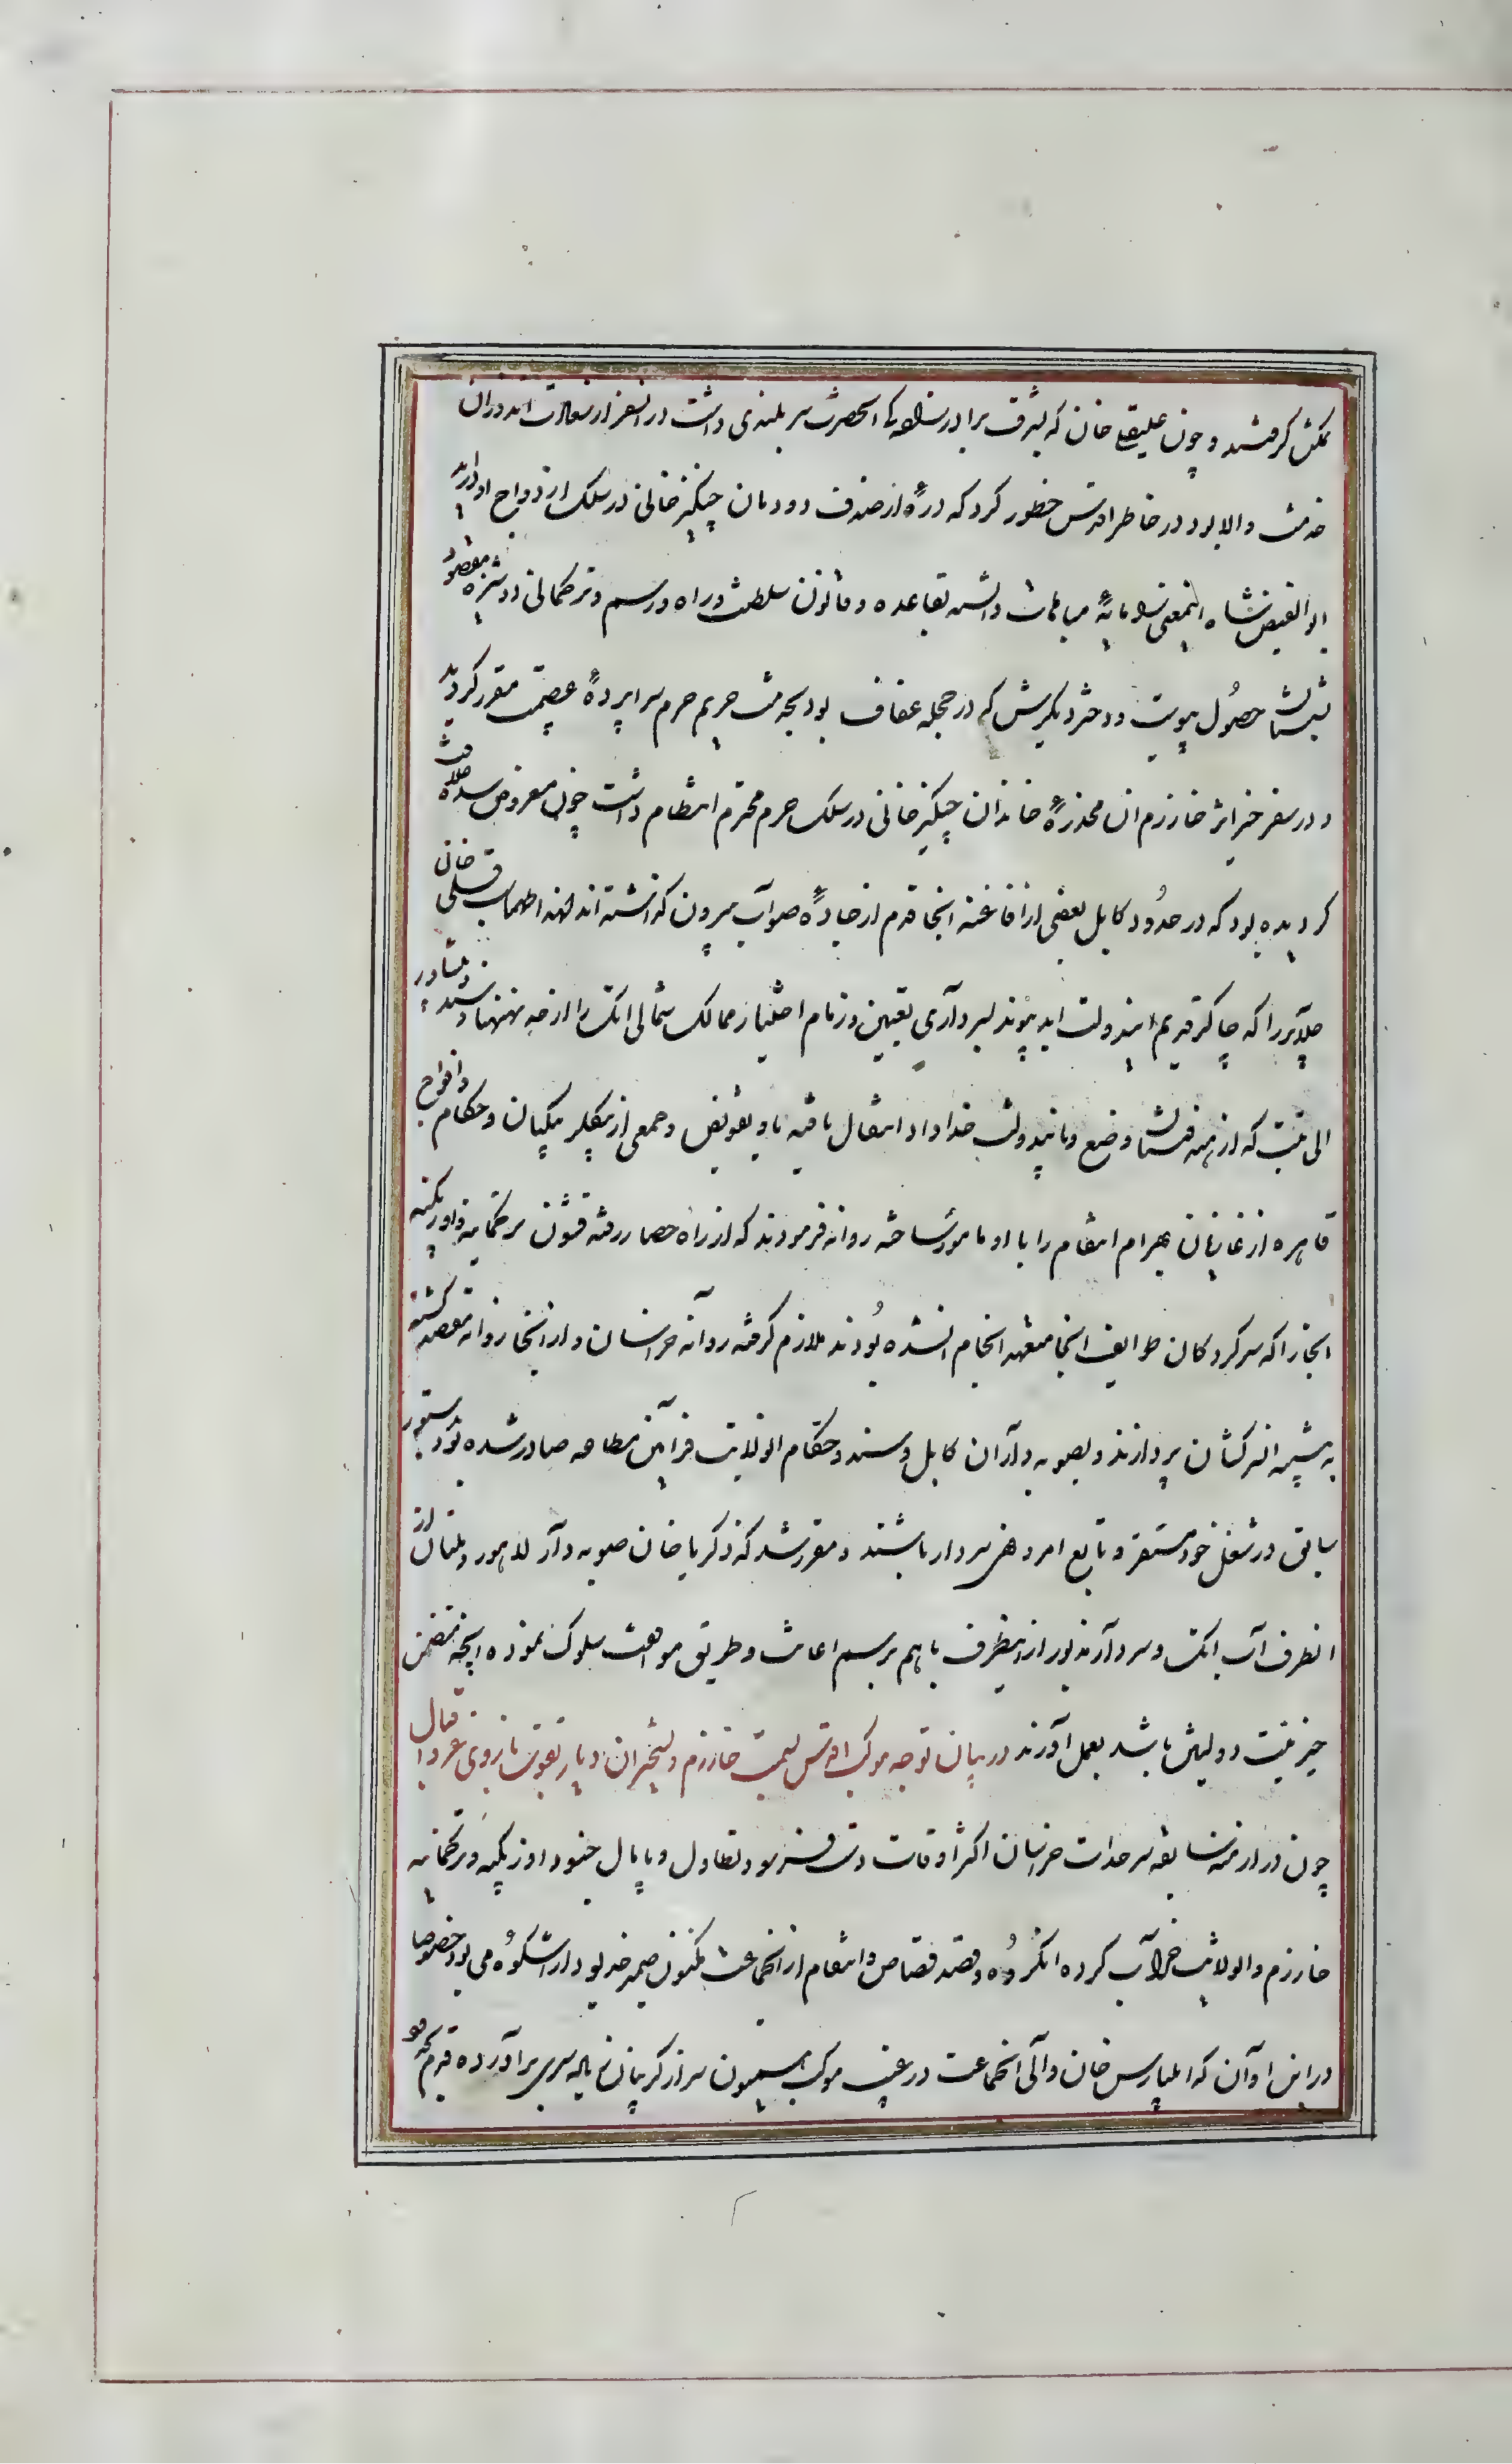 تمکین گرفتند و چون علیقلی خان که بشرف برادرزادگی آنحضرت سربلندی داشت در آنسفر از سعادت اندوزان
خدمت والا بود در خاطر اقدس خطور کرد که درهٔ از صدف دودمان چنگیزخانی در سلک ازدواج او درآید
ابوالفیض شاه اینمعنی را مایهٔ مباهات دانسته بقاعده و قانون سلطنت و راه و رسم و ترکمانی دوشیزه مقصود
شبستان حصول پیوست و دختر دیگرش که در حجله عفاف بود بخدمت حریم حرم سراپردهٔ عصمت مقرر گردید
و در سفر خیر اثر خارزم ان مخدرهٔ خاندان چنگیزخانی در سلک حرم محترم انتظام داشت چون معروض سده خلافت
گردیده بود که در حدود کابل بعضی از افاغنه انجا قدم از جادهٔ صواب بیرون گذاشته اند لهذا طهماسب قلی خانی
جلایر را که چاکر قدیم ایندولت ابد پیوند بسرداری تعیین و زمام اختیار ممالک شمالی اتک را از خبر منتهای سند و پشاور
الی تبت که از هندوستان وضع و بایندولت خداداد انتقال یافته باو تفویض و جمعی از بیگلر بیگیان و حکام و افواج
قاهره از غازیان بهرام انتقام را با او مامور ساخته روانه فرمودند که از راه حصار رفته قشون ترکمانیه و اوزبکیه
انجا را که سرکردگان طوایف انجا متعهد انجام انشده بودند ملازم گرفته روانه خراسان و از انجا روانه مقصد گشته
به تنبیه سرکشان پردازند و بصوبه داران کابل و سند و حکام انولایت فرامین مطاعه صادر شده بود بدستور
سابق در شغل خود مستقر و تابع امر و نهی سردار باشند و مقرر شد که ذکریا خان صوبه دار لاهور و ملتان از
انطرف آب اتک و سردار مذبور از اینطرف باهم برسم اعانت و طریق موافقت سلوک نموده انچه متضمن
خیریت دولتین باشد بعمل آورند در بیان توجه موکب اقدس بسمت خارزم و تسخیر ان دیار بقوت بازوی عز و اقبال
چون در ازمنه سابقه سرحدات خراسان اکثر اوقات دست فرسود تطاول و پایمال جنود اوزبکیه و ترکمانیه
خارزم و انولایت خراب کرده انگروه و قصد قصاص و انتقام از انجماعت مکنون ضمیر خدیو دارا شکوه می بود خصوصا
در این اوان که ایلبارس خان والی انجماعت در غیبت موکب همیون سر از گریبان خیاله سری برآورده قدم بحدود